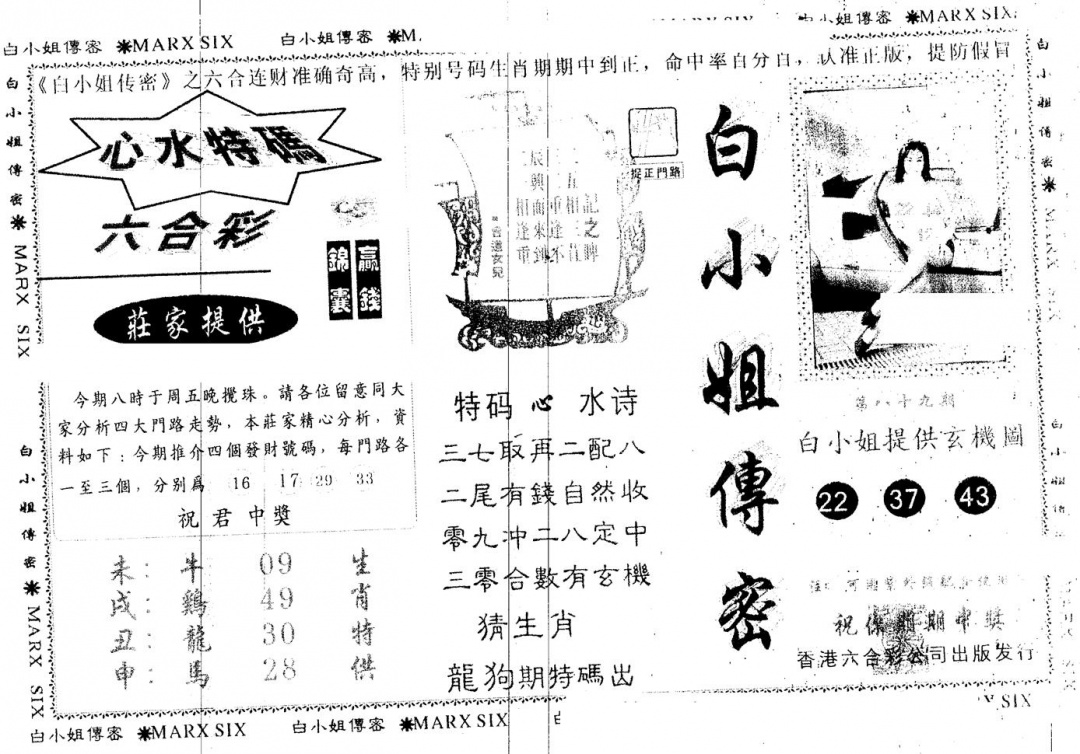 白小姐傳密 ❋MARX SIX
白小姐傳密 ❋M
❋MARX SIX
《白小姐传密》之六合连财准确奇高，特别号码生肖期期中到正，命中率百分百，认准正版，提防假冒
心水特碼
六合彩
錦囊
贏錢
莊家提供
今期八時于周五晚攪珠。請各位留意同大
家分析四大門路走勢，本莊家精心分析，資
料如下：今期推介四個發財號碼，每門路各
一至三個，分别爲 16 17 29 33
祝君中獎
未：牛 09 生
戌：鷄 49 肖
丑：龍 30 特
申：馬 28 供
捉正門路
特码 心 水诗
三七取再二配八
二尾有錢自然收
零九冲二八定中
三零合數有玄機
猜生肖
龍狗期特碼出
白小姐傳密
第八十九期
白小姐提供玄機圖
22 37 43
香港六合彩公司出版发行
白小姐傳密 ❋ MARX SIX
白小姐傳密 ❋ MARX SIX
白小姐傳密 ❋
白小姐傳密 ❋MARX SIX
白小姐傳密 ❋MARX SIX